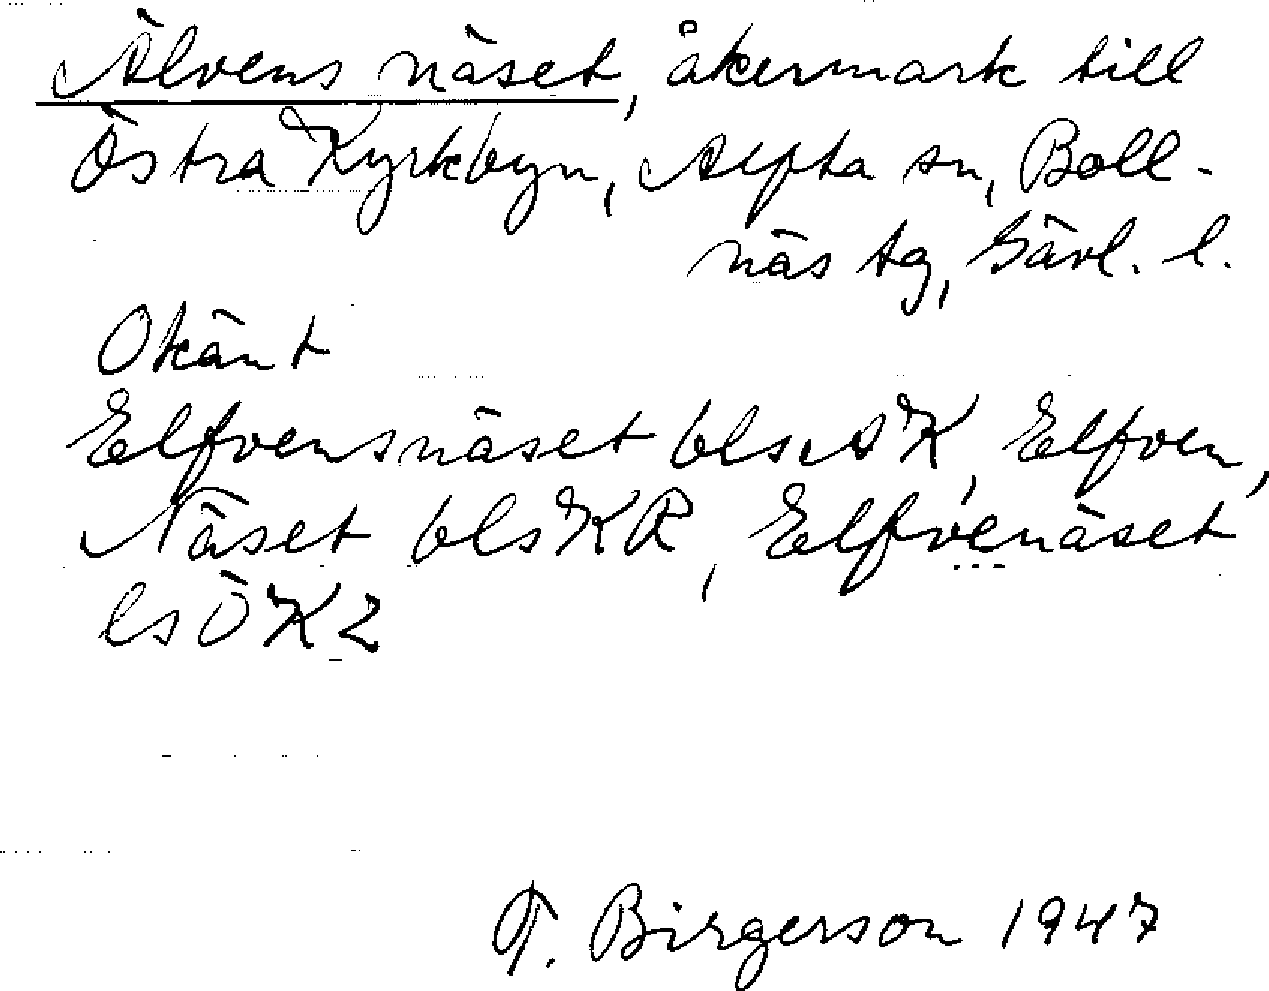 Älvens näset, åkermark till
Östra Kyrkbyn, Alfta sn, Boll-
näs tg, Gävl. l.
Okänt
Elfvensnäset bls ÖK, Elfven,
Näset bls KR, Elfvenäset
ls ÖK 2
T. Birgerson 1947